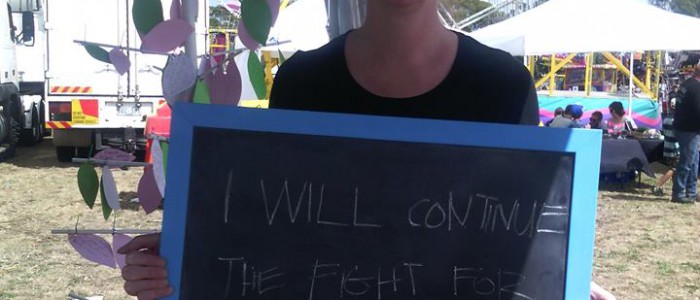 I WILL CONTINUE
THE FIGHT FOR